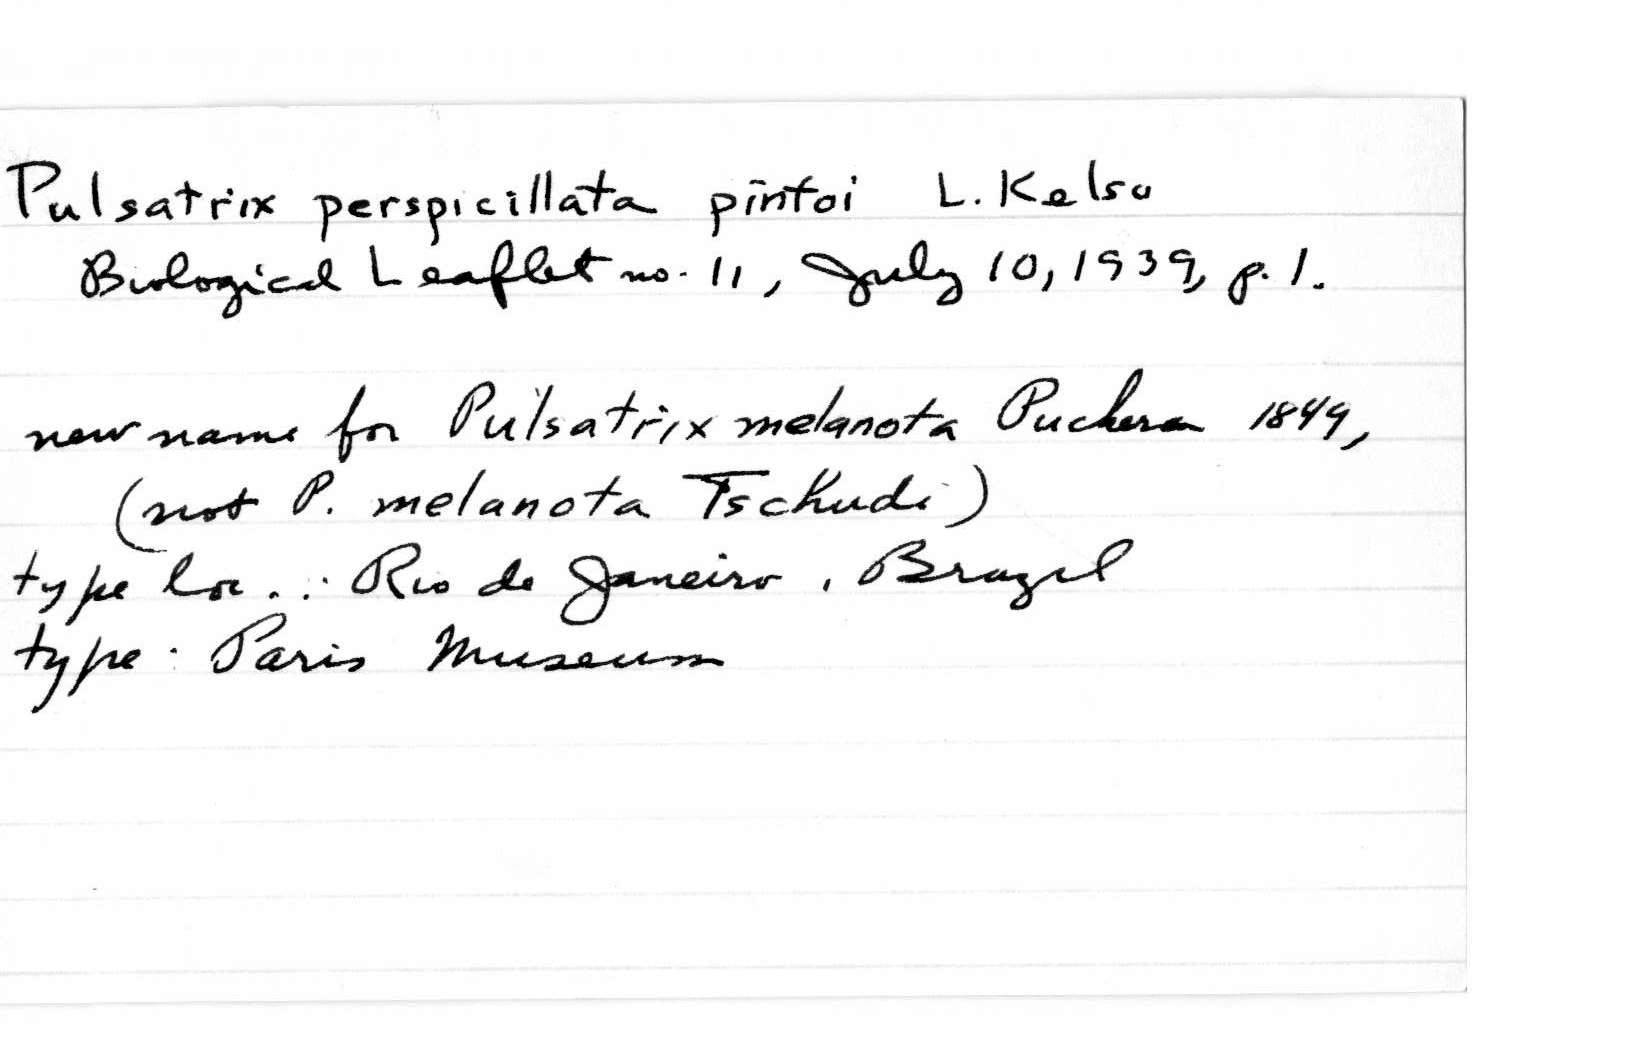 Pulsatrix perspicillata pintoi L. Kelso
Biological Leaflet no. 11, July 10, 1939, p. 1.
new name for Pulsatrix melanota Pucheran 1849,
(not P. melanota Tschudi)
type loc. : Rio de Janeiro, Brazil
type: Paris Museum